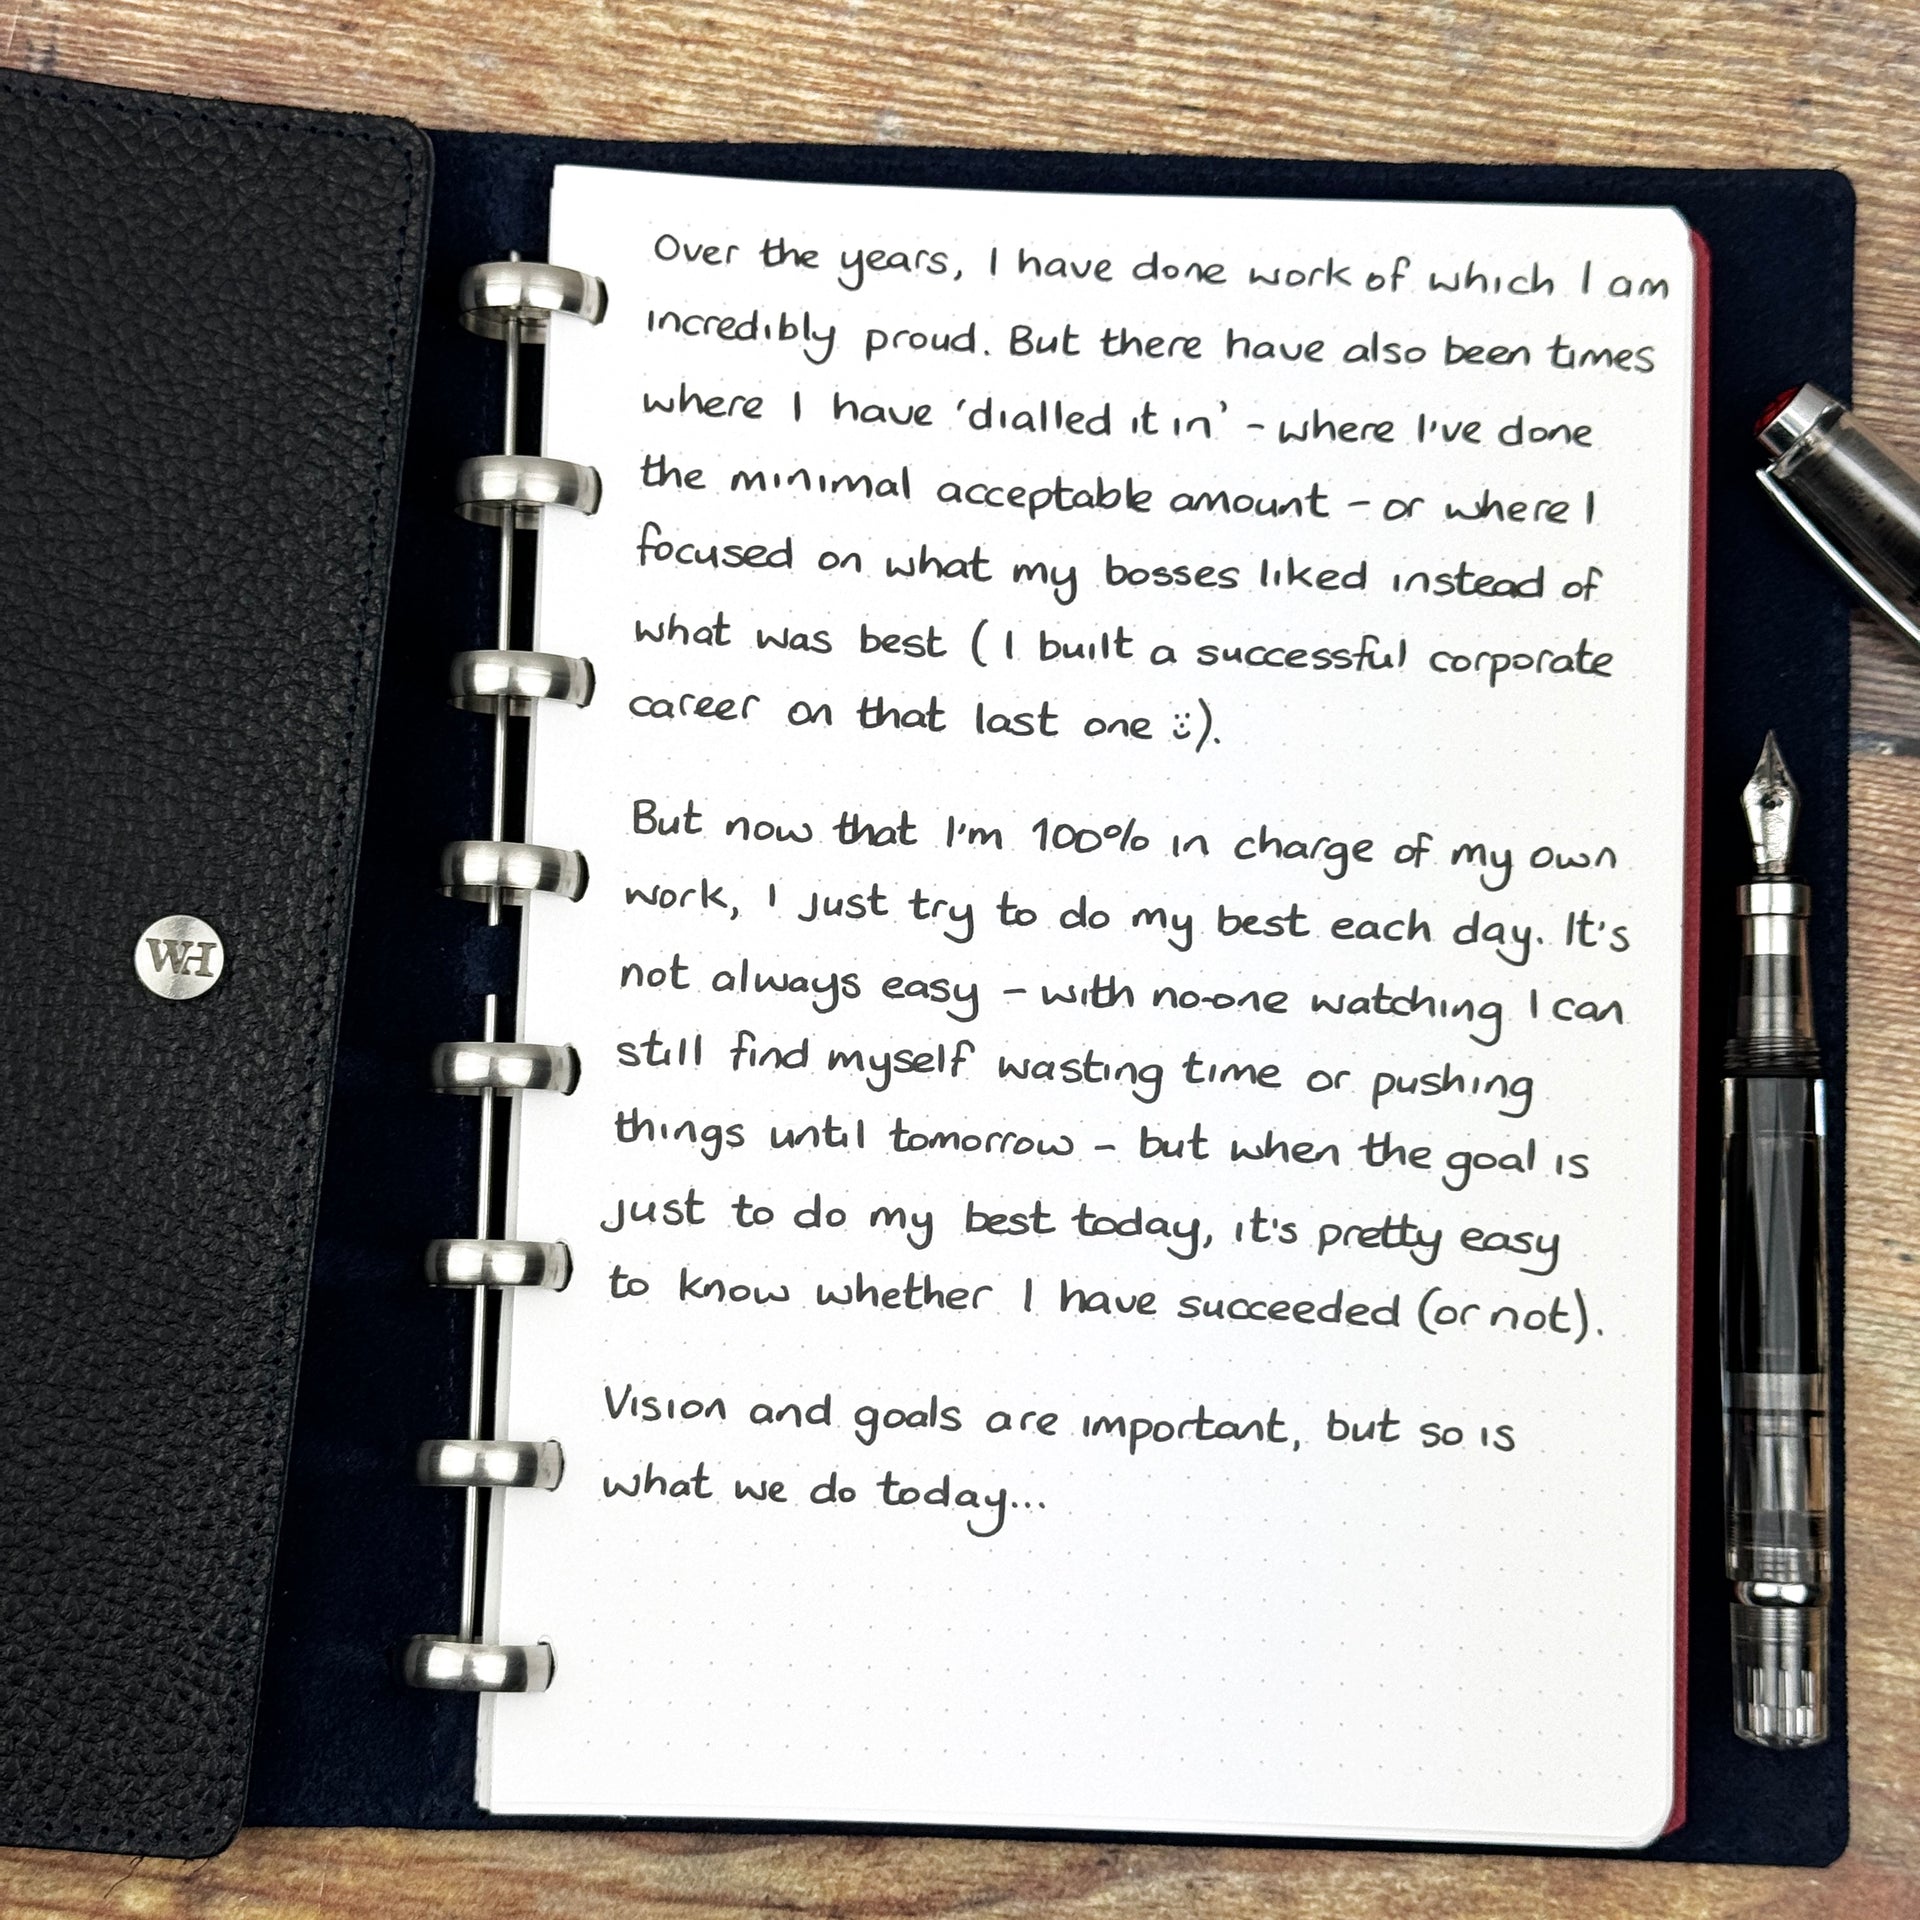 WH
Over the years, I have done work of which I am
incredibly proud. But there have also been times
where I have 'dialled it in' - where I've done
the minimal acceptable amount - or where I
focused on what my bosses liked instead of
what was best (I built a successful corporate
career on that last one :)).
But now that I'm 100% in charge of my own
work, I just try to do my best each day. It's
not always easy - with no-one watching I can
still find myself wasting time or pushing
things until tomorrow - but when the goal is
just to do my best today, it's pretty easy
to know whether I have succeeded (or not).
Vision and goals are important, but so is
what we do today...